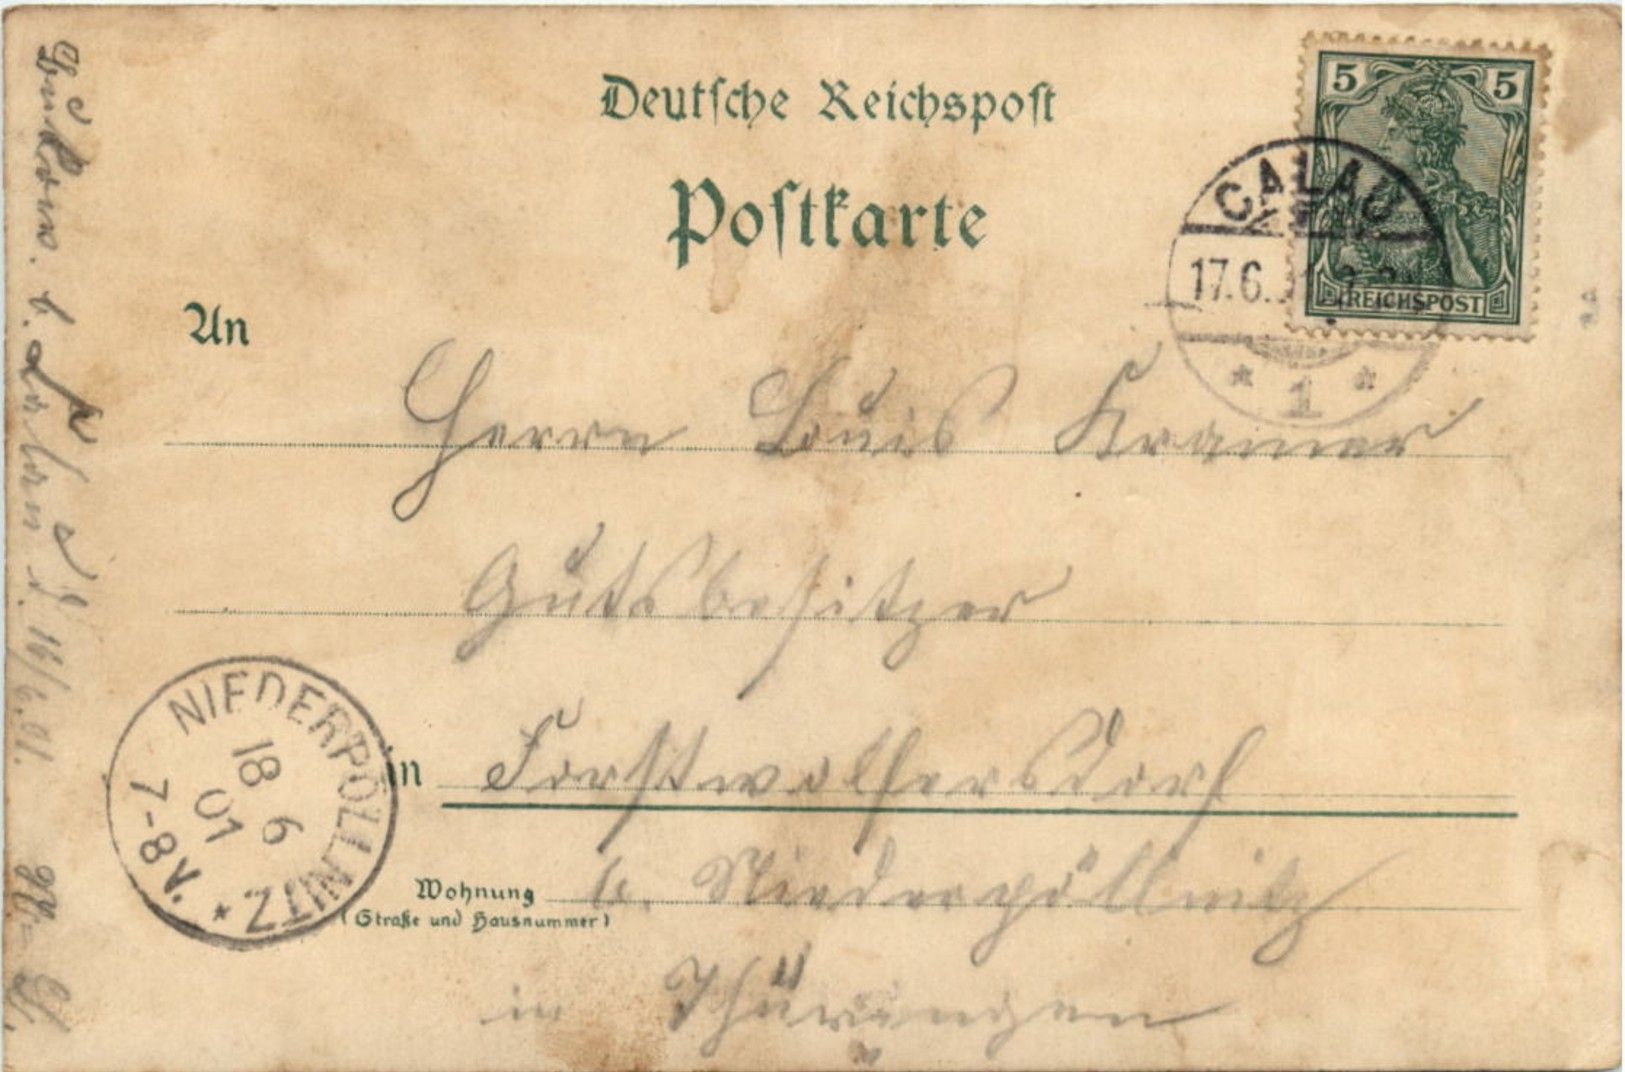 Deutsche Reichspost
Postkarte
5 5
REICHSPOST
CALAU
17.6.
* 1 *
An
Herrn Louis Kramer
Gutsbesitzer
in Forstwolfersdorf
Wohnung b. Niederpöllnitz
(Straße und Hausnummer)
in Thüringen
NIEDERPÖLLNITZ *
18 6
01
7-8V.
b. Calau d. 16/6.01.